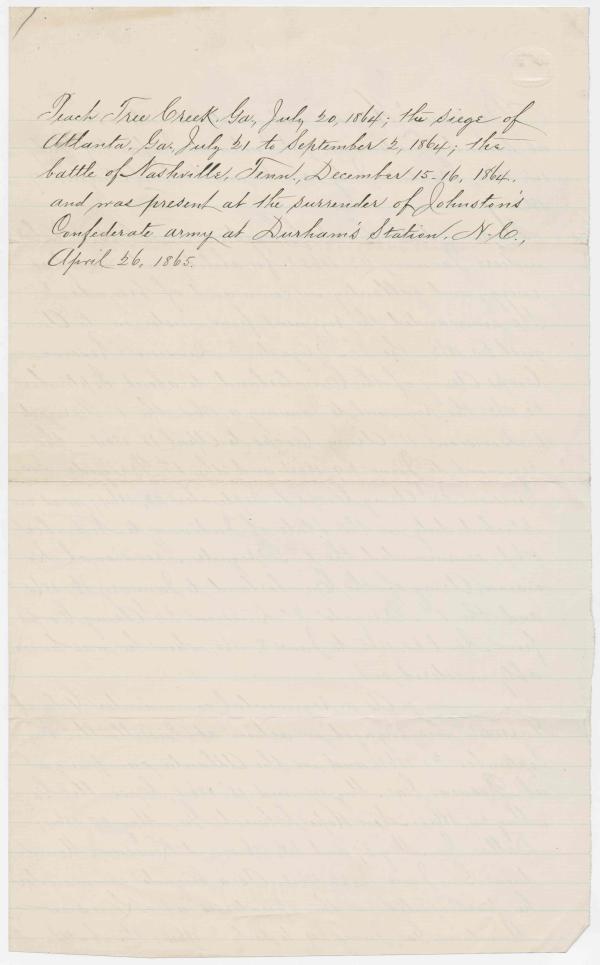 Peach Tree Creek, Ga, July 20, 1864; the siege of
Atlanta, Ga, July 21 to September 2, 1864; the
battle of Nashville, Tenn., December 15-16, 1864.
and was present at the surrender of Johnston's
Confederate army at Durham's Station, N.C.,
April 26, 1865.